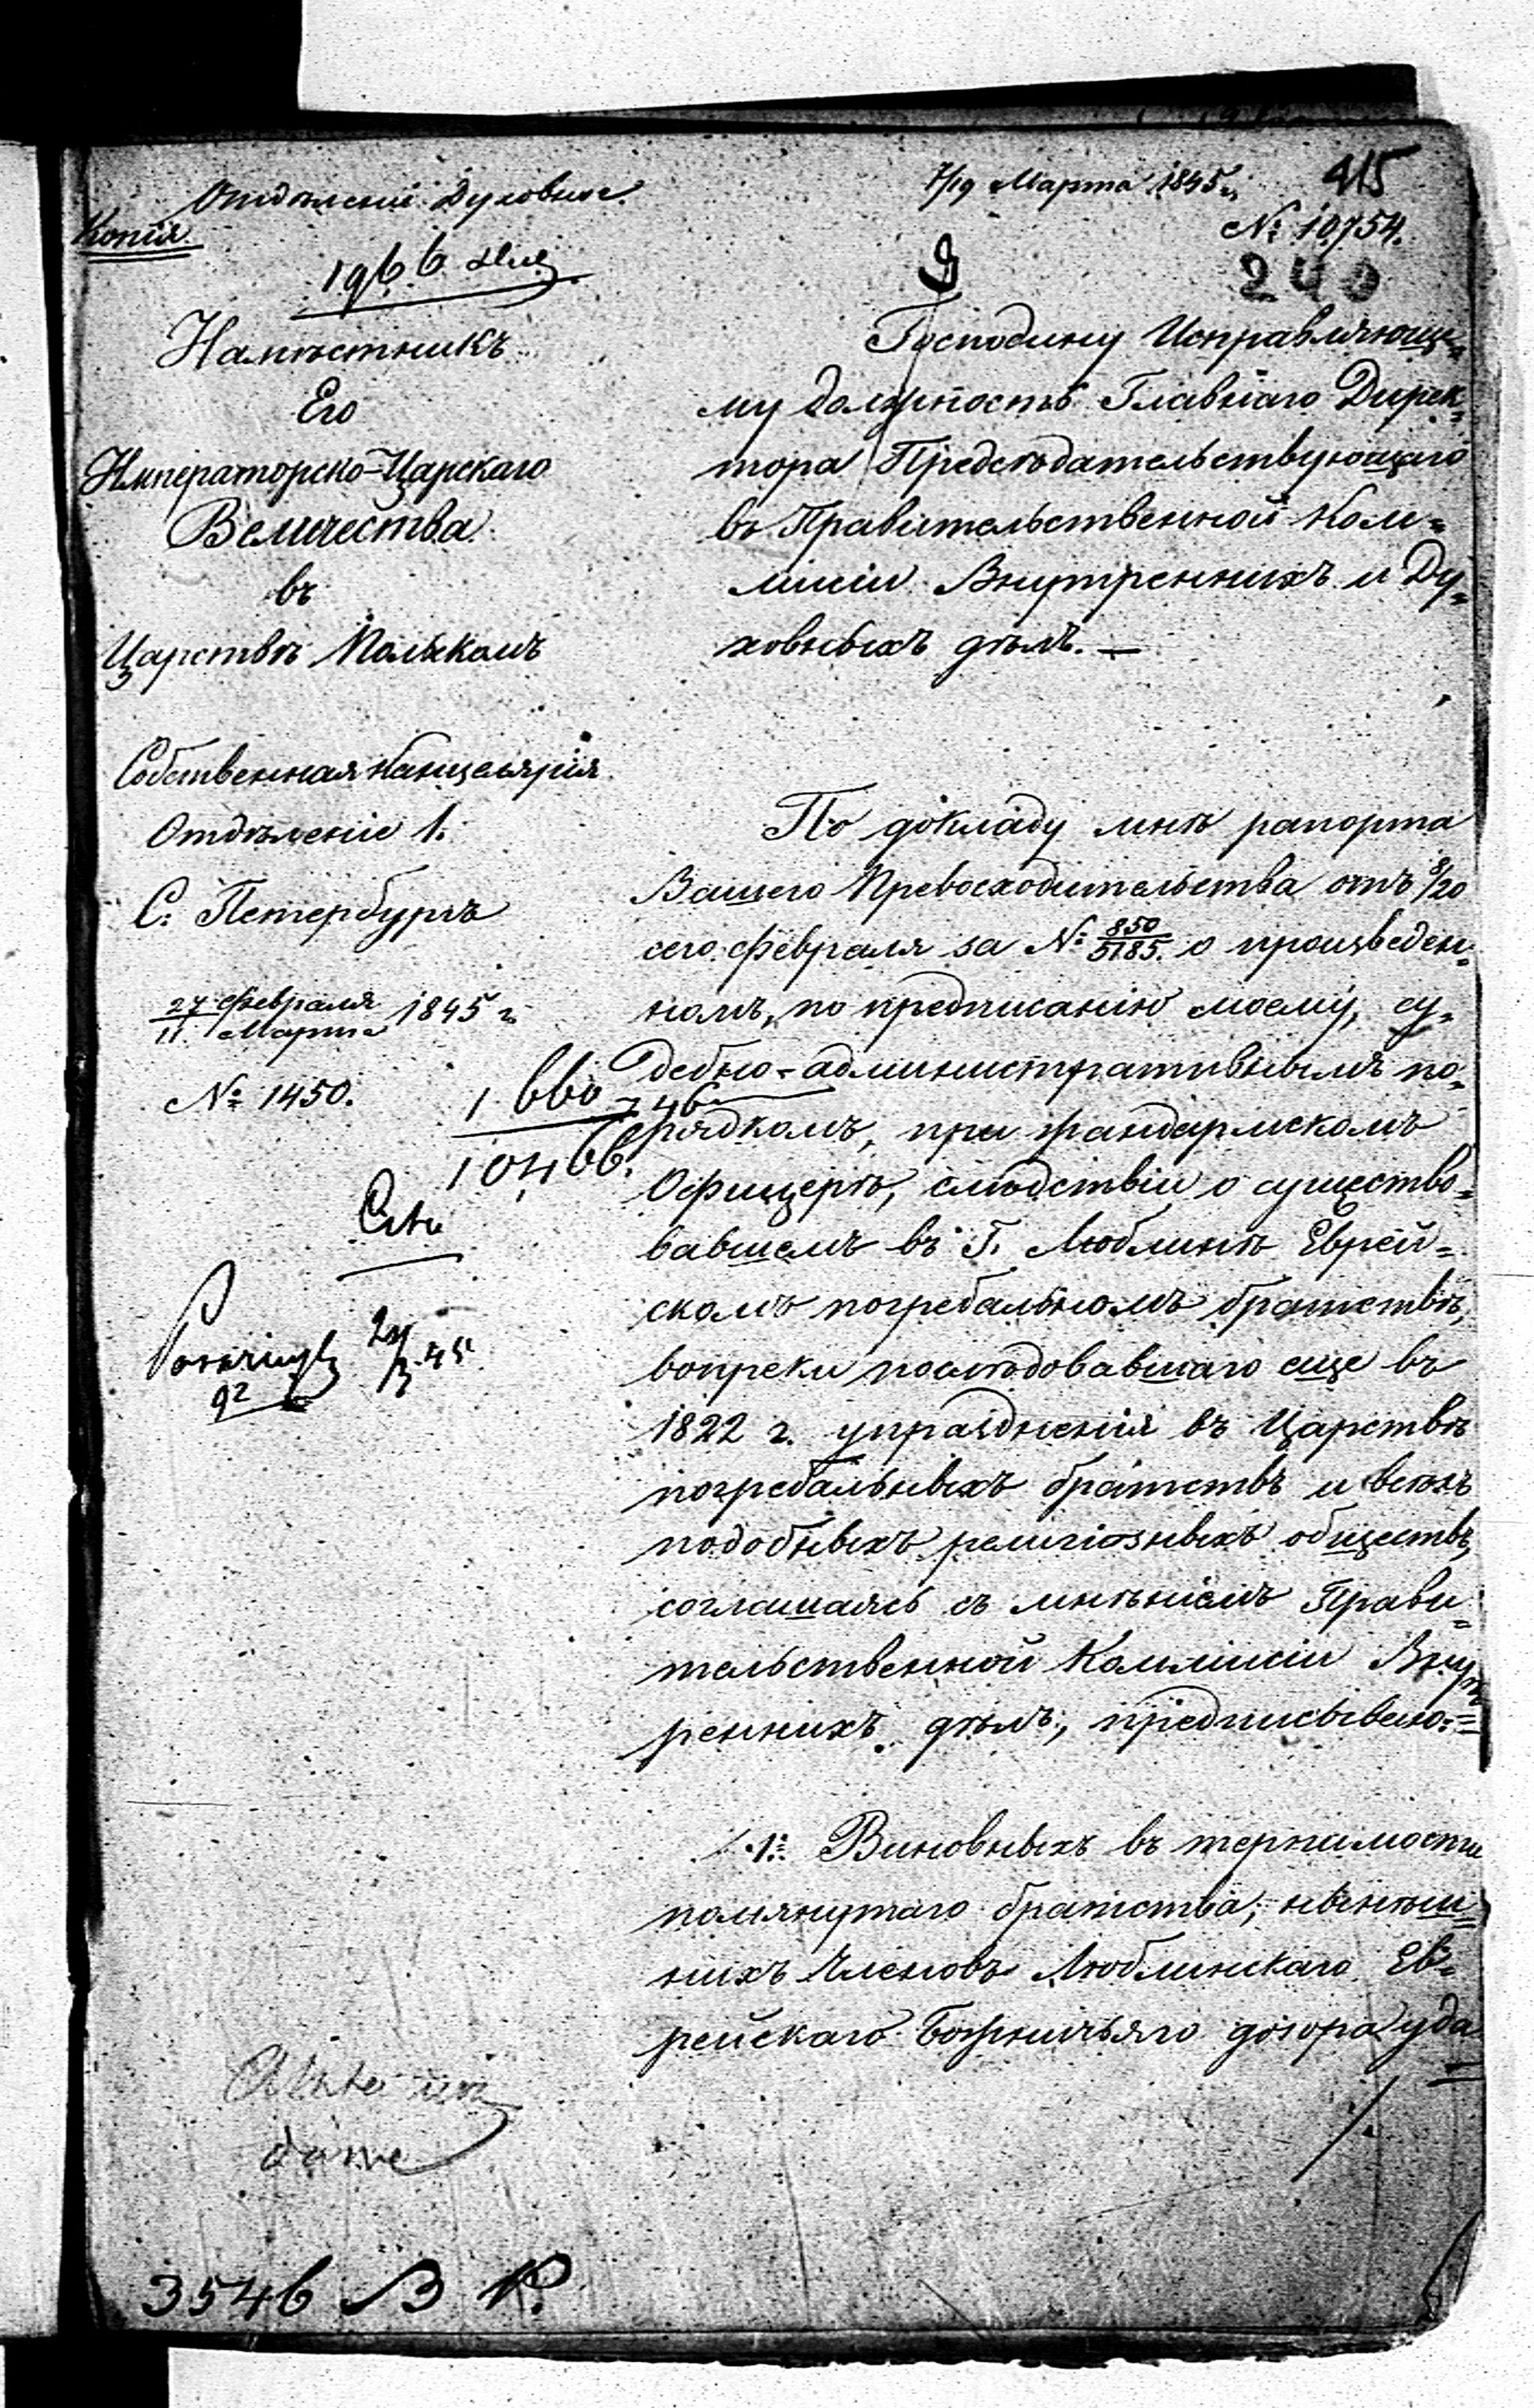 Отдѣленіе Духовное.
7/19 Марта 1845 г.
415
Копія.
№ 10754.
240
Намѣстникъ
Его
Императорско-Царскаго
Величества
въ
Царствѣ Польскомъ
Собственная Канцелярія
Отдѣленіе 1.
С. Петербургъ
27 Февраля / 11 Марта 1845 г.
№ 1450.
Господину Исправляюще-
му должность Главнаго Дирек-
тора Предсѣдательствующаго
въ Правительственной Ком-
мисіи Внутреннихъ и Ду-
ховныхъ дѣлъ. —
По докладу мнѣ рапорта
Вашего Превосходительства отъ 8/20
сего Февраля за № 850/5185. о произведен-
номъ, по предписанію моему, су-
дебно-административнымъ по-
рядкомъ, при жандармскомъ
Офицерѣ, слѣдствіи о существо-
вавшемъ въ Г. Люблинѣ Еврей-
скомъ погребальномъ братствѣ,
вопреки послѣдовавшаго еще въ
1822 г. упраздненія въ Царствѣ
погребальныхъ братствъ и всѣхъ
подобныхъ религіозныхъ обществъ,
соглашаясь съ мнѣніемъ Прави-
тельственной Коммисіи Внут-
реннихъ дѣлъ, предписываю:
1. Виновныхъ въ терпимости
помянутаго братства, нынѣш-
нихъ Членовъ Люблинскаго Ев-
рейскаго Божничьяго дозора уда-
3546 В Р.